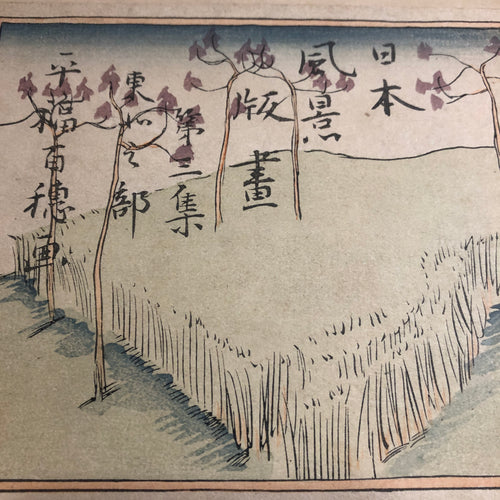 日本
風景
版畫
第三集
東北之部
平福百穂画